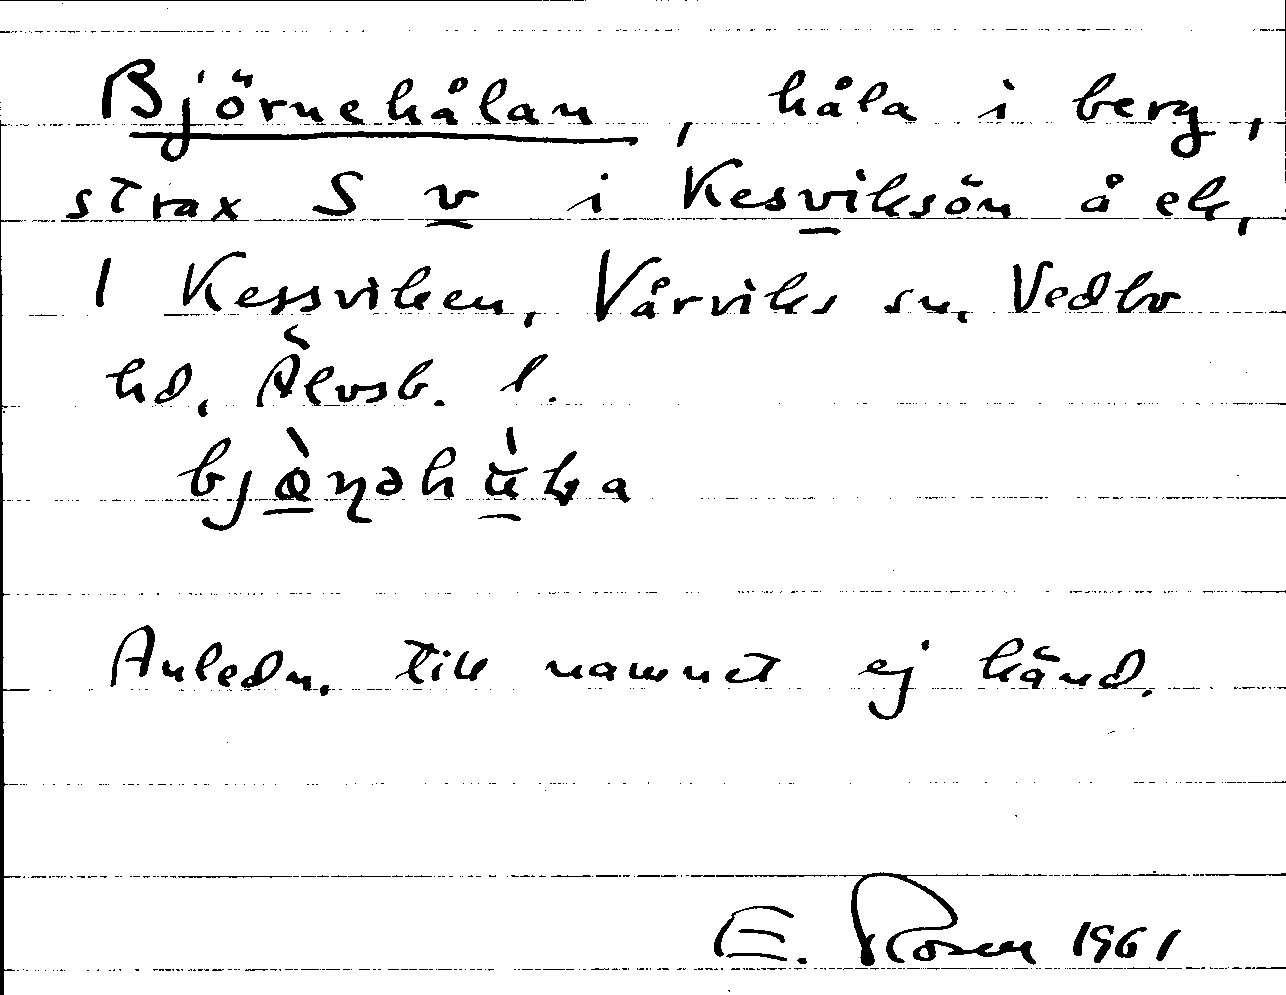 Björnehålan, håla i berg,
strax S v i Kesviksön å ek,
1 Kessviken, Vårviks sn, Vedbo
hd, Älvsb. l.
Anledn. till namnet ej känd.
E. Rosen 1961